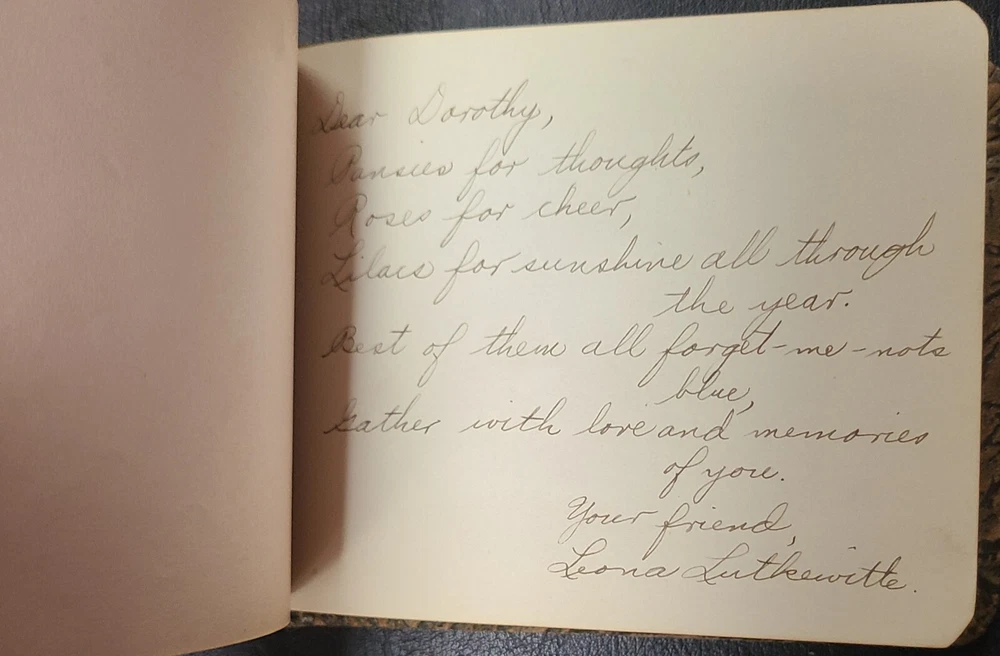 Dear Dorothy,
Pansies for thoughts,
Roses for cheer,
Lilacs for sunshine all through
the year.
Best of them all forget-me-nots
blue,
Gather with love and memories
of you.
Your friend,
Leona Lutkewitte.